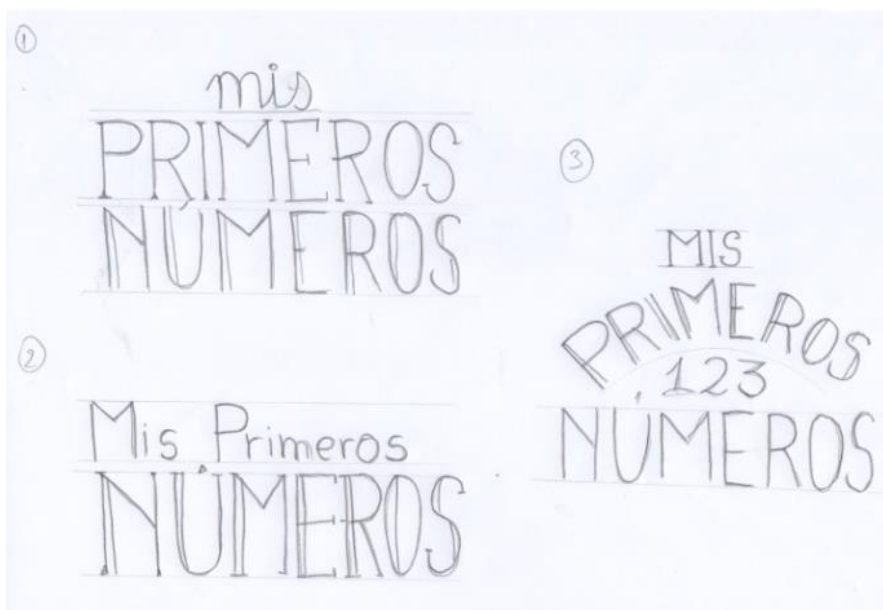 1
mis
PRIMEROS
NÚMEROS
2
Mis Primeros
NÚMEROS
3
MIS
PRIMEROS
123
NÚMEROS